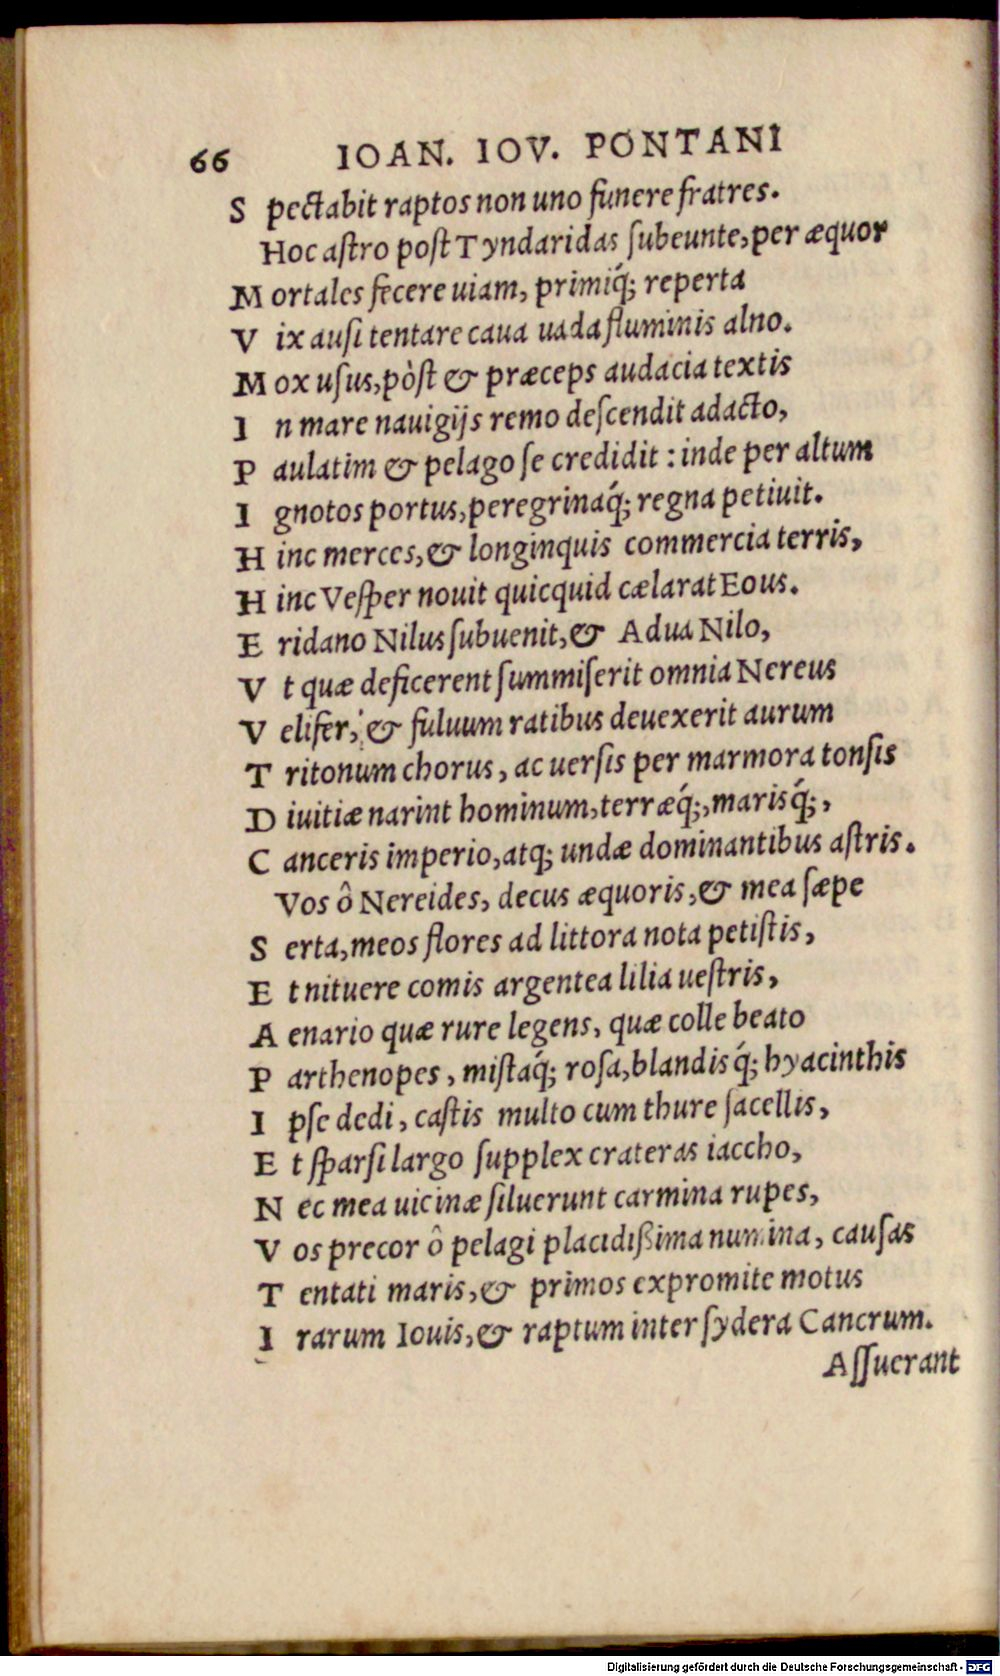 66 IOAN. IOV. PONTANI
S pectabit raptos non uno funere fratres.
Hoc aſtro poſt Tyndaridas ſubeunte, per æquor
M ortales fecere uiam, primiq́; reperta
V ix auſi tentare caua uada fluminis alno.
M ox uſus, pòſt & præceps audacia textis
I n mare nauigijs remo deſcendit adacto,
P aulatim & pelago ſe credidit : inde per altum
I gnotos portus, peregrinaq́; regna petiuit.
H inc merces, & longinquis commercia terris,
H inc Veſper nouit quicquid cælarat Eous.
E ridano Nilus ſubuenit, & Adua Nilo,
V t quæ deficerent ſummiſerit omnia Nereus
V elifer, & fuluum ratibus deuexerit aurum
T ritonum chorus, ac uerſis per marmora tonſis
D iuitiæ narint hominum, terræq́;, marisq́;,
C anceris imperio, atq; undæ dominantibus aſtris.
Vos ô Nereides, decus æquoris, & mea ſæpe
S erta, meos flores ad littora nota petiſtis,
E t nituere comis argentea lilia ueſtris,
A enario quæ rure legens, quæ colle beato
P arthenopes, miſtaq́; roſa, blandisq́; hyacinthis
I pſe dedi, caſtis multo cum thure ſacellis,
E t ſparſi largo ſupplex crateras iaccho,
N ec mea uicinæ ſiluerunt carmina rupes,
V os precor ô pelagi placidißima numina, cauſas
T entati maris, & primos expromite motus
I rarum Iouis, & raptum inter ſydera Cancrum.
Aſſuerant
Digitalisierung gefördert durch die Deutsche Forschungsgemeinschaft - DFG